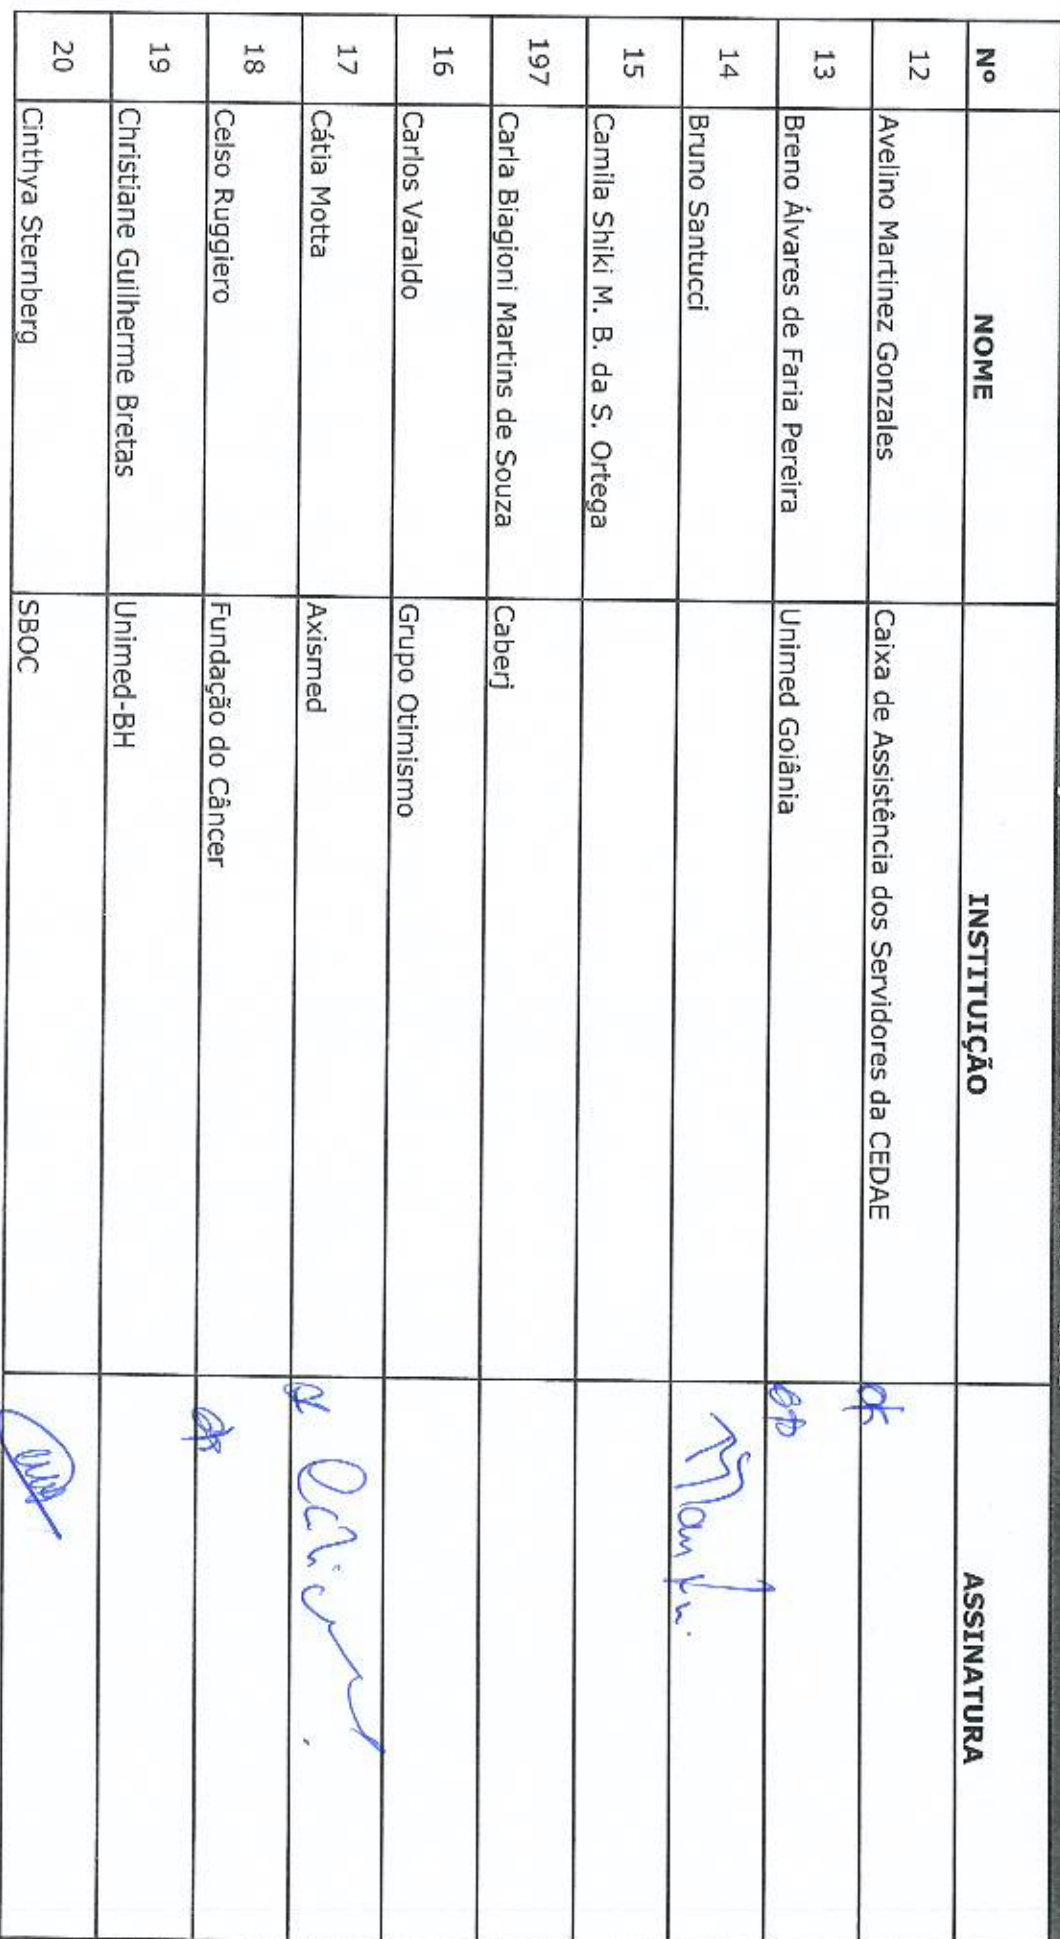 Nº NOME INSTITUIÇÃO ASSINATURA
12 Avelino Martinez Gonzales Caixa de Assistência dos Servidores da CEDAE
13 Breno Álvares de Faria Pereira Unimed Goiânia
14 Bruno Santucci
15 Camila Shiki M. B. da S. Ortega
197 Carla Biagioni Martins de Souza Caberj
16 Carlos Varaldo Grupo Otimismo
17 Cátia Motta Axismed
18 Celso Ruggiero Fundação do Câncer
19 Christiane Guilherme Bretas Unimed-BH
20 Cinthya Sternberg SBOC